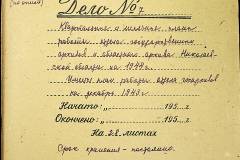 Дело № 7
Квартальные и месячные планы
работы отдела государственных
архивов и областного архива Николаев-
ской области на 1944 г.
планы работы отдела госархивов
на декабрь 1943 г.
Начато: „ 195 г.
Окончено: „ 195 г.
На 28 листах
Срок хранения - постоянно.